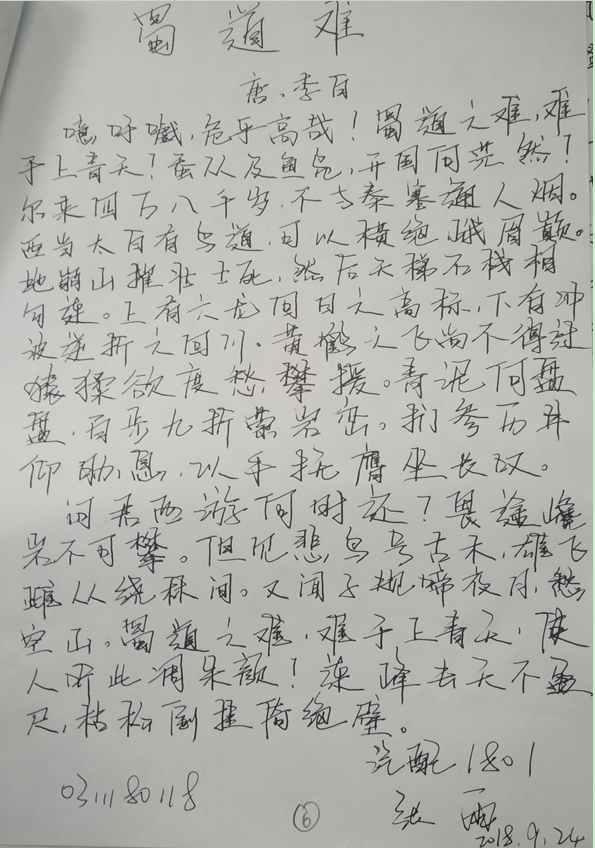 蜀道难
唐.李白
噫吁嚱,危乎高哉!蜀道之难,难
于上青天?蚕丛及鱼凫,开国何茫然?
尔来四万八千岁,不与秦塞通人烟。
西当太白有鸟道,可以横绝峨眉巅。
地崩山摧壮士死,然后天梯石栈相
勾连。上有六龙回日之高标,下有冲
波逆折之回川.黄鹤之飞尚不得过
猿猱欲度愁攀援。青泥何盘
盘,百步九折萦岩峦。扪参历井
仰胁息,以手抚膺坐长叹。
问君西游何时还?畏途巉
岩不可攀。但见悲鸟号古木,雄飞
雌从绕林间。又闻子规啼夜月,愁
空山,蜀道之难,难于上青天,使
人听此凋朱颜!连峰去天不盈
尺,枯松倒挂倚绝壁。
汽配1801
031180118
⑥
张
2018.9.24